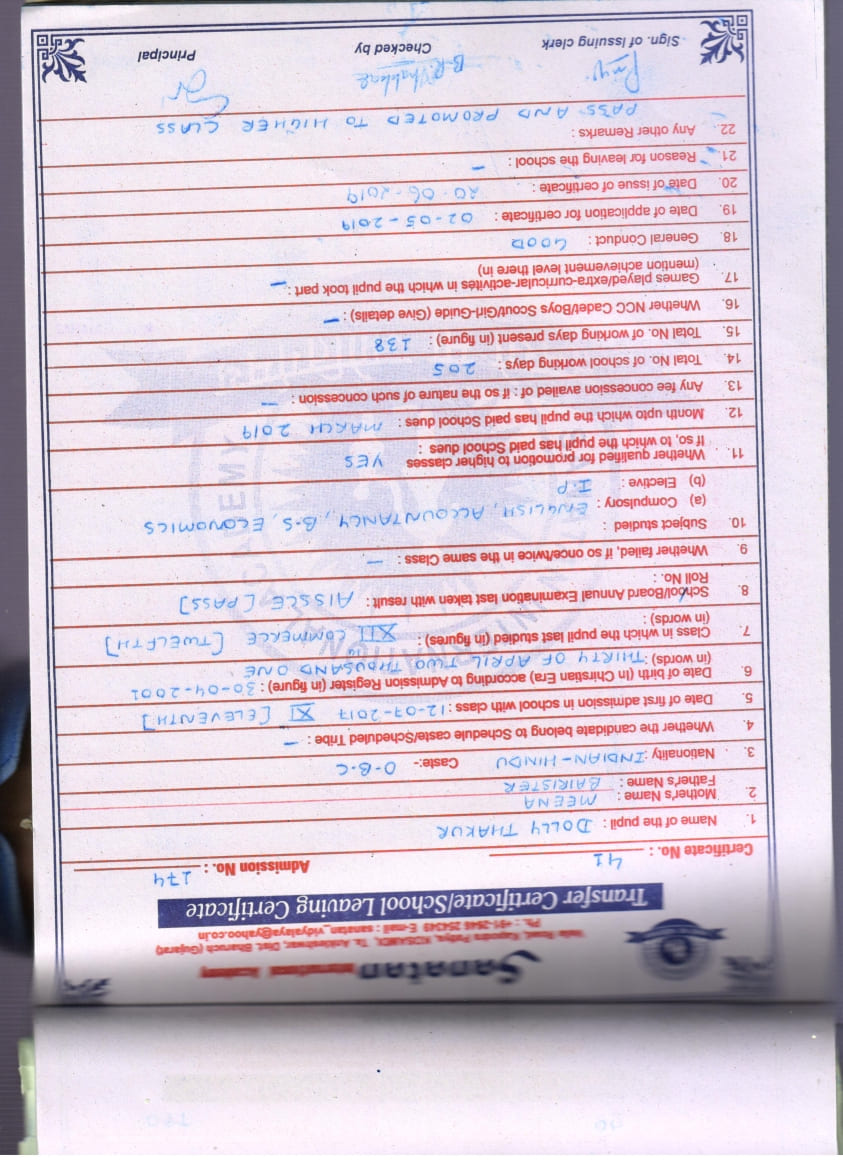 Sanatan International Academy
Valia Road, Kapodra Patiya, KOSAMDI, Ta. Ankleshwar, Dist. Bharuch (Gujarat)
Ph. : +91-2646 254349 E-mail : sanatan_vidyalaya@yahoo.co.in
Transfer Certificate/School Leaving Certificate
Certificate No. : 41 Admission No. : 174
1. Name of the pupil : DOLLY THAKUR
2. Mother's Name : MEENA
Father's Name : BAIRISTER
3. Nationality : INDIAN-HINDU Caste:- O.B.C
4. Whether the candidate belong to Schedule caste/Scheduled Tribe : –
5. Date of first admission in school with class : 12-07-2017 XI [ELEVENTH]
6. Date of birth (In Christian Era) according to Admission Register (in figure) : 30-04-2001
(in words) : THIRTY OF APRIL TWO THOUSAND ONE
7. Class in which the pupil last studied (in figures) : XII COMMERCE [TWELFTH]
(in words) :
8. School/Board Annual Examination last taken with result : AISSCE [PASS]
Roll No. :
9. Whether failed, if so once/twice in the same Class : –
10. Subject studied :
(a) Compulsory : ENGLISH, ACCOUNTANCY, B.S, ECONOMICS
(b) Elective : I.P
11. Whether qualified for promotion to higher classes YES
If so, to which the pupil has paid School dues :
12. Month upto which the pupil has paid School dues : MARCH 2019
13. Any fee concession availed of : if so the nature of such concession : –
14. Total No. of school working days : 205
15. Total No. of working days present (in figure) : 138
16. Whether NCC Cadet/Boys Scout/Girl-Guide (Give details) : –
17. Games played/extra-curricular-activites in which the pupil took part : –
(mention achievement level there in)
18. General Conduct : GOOD
19. Date of application for certificate : 02-05-2019
20. Date of issue of certificate : 20-06-2019
21. Reason for leaving the school : –
22. Any other Remarks :
PASS AND PROMOTED TO HIGHER CLASS
Sign. of Issuing clerk Checked by Principal